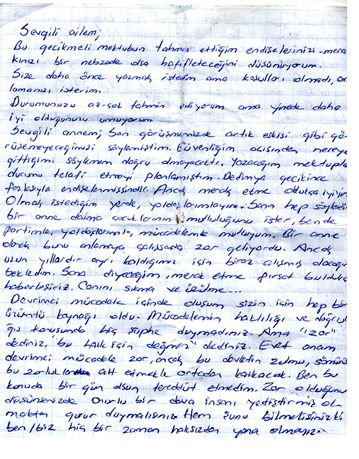 Sevgili ailem;
Bu gecikmeli mektubun tahmin ettiğim endişelerinizi-mera
kınızı bir nebzede olsa hafifleteceğini düşünüyorum.
Size daha önce yazmak isterdim ama koşulları olmadı, an
lamanızı isterim.
Durumunuzu az-çok tahmin ediyorum ama yinede daha
iyi olduğunuzu umuyorum.
Sevgili annem; Son görüşmemizde artık eskisi gibi gö-
rüşemeyeceğimizi söylemiştim. Güvenliğim açısından nereye
gittiğimi söylemem doğru olmayacaktı. Yazacağım mektupla
durumu telafi etmeyi planlamıştım. Dedimya gecikince
fazlasıyla endişelenmişsindir. Ancak merak etme oldukça iyiyim
Olmak istediğim yerde, yoldaşlarımlayım. Sana hep söyledi
bir anne daima çocuklarının mutluluğunu ister, ben de
partimle, yoldaşlarımla, mücadelemle mutluyum. Bir anne
olarak bunu anlamaya çalışsanda zor geliyordu. Ancak
uzun yıllardır ayrı kaldığımız için biraz alışmış olacağı
bekledim. Sana diyeceğim, merak etme fırsat buldukça
haberleşiriz. Canını sıkma ve üzülme...
Devrimci mücadele içinde oluşum sizin için hep bir
üzüntü kaynağı oldu. Mücadelemin haklılığı ve doğrulu
ğu konusunda hiç şüphe duymadınız. Ama "zor"
dediniz, bu halk için değmez" dediniz. Evet anam
devrimci mücadele zor, ancak bu devletin zulmü, sömürü
bu zorlukları alt etmekle ortadan kalkacak. Ben bu
konuda bir gün olsun tereddüt etmedim. Zor olduğunu
düşünsenizde Onurlu bir dava insanı yetiştirmiş ol
maktan gurur duymalısınız. Hem şunu bilmelisiniz ki
ben/biz hiç bir zaman haksızdan yana olmayız.